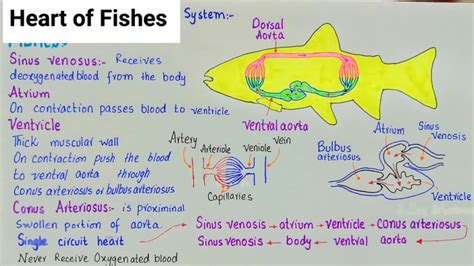 Heart of Fishes
System:-
Sinus venosus:- Receives
deoxygenated blood from the body
Atrium
On contraction passes blood to ventricle
Ventricle
Thick muscular wall
On contraction push the blood
to ventral aorta through
Conus arteriosus or bulbus arteriosus
Conus Arteriosus:- is proximinal
Swollen portion of aorta.
Single circuit heart
Never Receive Oxygenated blood
Dorsal
Aorta
Ventral aorta
Artery
Arteriole
Veniole
vein
Capillaries
Atrium
Sinus
Venosis
Bulbus
arteriosus
Ventricle
Sinus venosis → atrium → ventricle → Conus arteriosus
Sinus venosis ← body ← ventral aorta